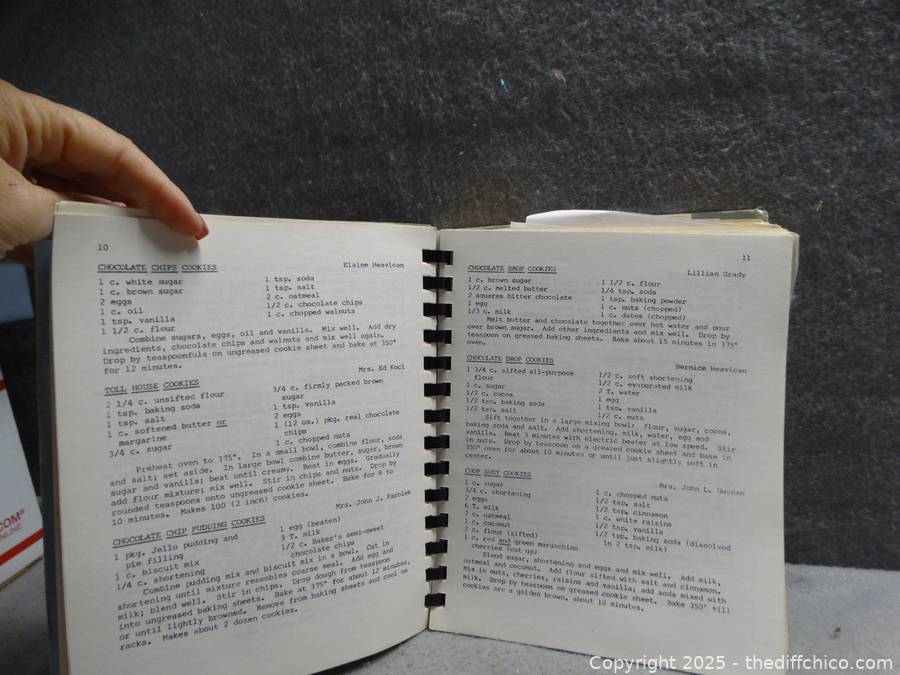 10
CHOCOLATE CHIPS COOKIES
Elaine Heavican
1 c. white sugar
1 c. brown sugar
2 eggs
1 c. oil
1 tsp. vanilla
1 1/2 c. flour
1 tsp. soda
1 tsp. salt
2 c. oatmeal
1/2 c. chocolate chips
1 c. chopped walnuts
Combine sugars, eggs, oil and vanilla. Mix well. Add dry
ingredients, chocolate chips and walnuts and mix well again.
Drop by teaspoonfuls on ungreased cookie sheet and bake at 350°
for 12 minutes.
TOLL HOUSE COOKIES
Mrs. Ed Koci
2 1/4 c. unsifted flour
1 tsp. baking soda
1 tsp. salt
1 c. softened butter or
margarine
3/4 c. sugar
3/4 c. firmly packed brown
sugar
1 tsp. vanilla
2 eggs
1 (12 oz.) pkg. real chocolate
chips
1 c. chopped nuts
Preheat oven to 375°. In a small bowl, combine flour, soda
and salt; set aside. In large bowl combine butter, sugar, brown
sugar and vanilla; beat until creamy. Beat in eggs. Gradually
add flour mixture; mix well. Stir in chips and nuts. Drop by
rounded teaspoons onto ungreased cookie sheet. Bake for 8 to
10 minutes. Makes 100 (2 inch) cookies.
CHOCOLATE CHIP PUDDING COOKIES
Mrs. John J. Parolek
1 pkg. Jello pudding and
pie filling
1 c. biscuit mix
1/4 c. shortening
1 egg (beaten)
3 T. milk
1/2 c. Baker's semi-sweet
chocolate chips
Combine pudding mix and biscuit mix in a bowl. Cut in
shortening until mixture resembles coarse meal. Add egg and
milk; blend well. Stir in chips. Drop dough from teaspoon
into ungreased baking sheets. Bake at 375° for about 12 minutes,
or until lightly browned. Remove from baking sheets and cool on
racks. Makes about 2 dozen cookies.
11
CHOCOLATE DROP COOKIES
Lillian Grady
1 c. brown sugar
1/2 c. melted butter
2 squares bitter chocolate
1 egg
1/3 c. milk
1 1/2 c. flour
1/4 tsp. soda
1 tsp. baking powder
1 c. nuts (chopped)
1 c. dates (chopped)
Melt butter and chocolate together over hot water and pour
over brown sugar. Add other ingredients and mix well. Drop by
teaspoon on greased baking sheets. Bake about 15 minutes in 375°
oven.
CHOCOLATE DROP COOKIES
Bernice Heavican
1 3/4 c. sifted all-purpose
flour
1 c. sugar
1/2 c. cocoa
1/2 tsp. baking soda
1/2 tsp. salt
1/2 c. soft shortening
1/2 c. evaporated milk
2 T. water
1 egg
1 tsp. vanilla
1/2 c. nuts
Sift together in a large mixing bowl: flour, sugar, cocoa,
baking soda and salt. Add shortening, milk, water, egg and
vanilla. Beat 3 minutes with electric beater at low speed. Stir
in nuts. Drop by teaspoon on a greased cookie sheet and bake in
350° oven for about 10 minutes or until just slightly soft in
center.
CHOP SUEY COOKIES
Mrs. John L.
1 c. sugar
3/4 c. shortening
2 eggs
6 T. milk
2 c. oatmeal
1 c. coconut
2 c. flour (sifted)
1 c. red and green maraschino
cherries (cut up)
1 c. chopped nuts
1/2 tsp. salt
1/2 tsp. cinnamon
1 c. white raisins
1/2 tsp. vanilla
1/2 tsp. baking soda (dissolved
in 2 tsp. milk)
Blend sugar, shortening and eggs and mix well. Add milk,
oatmeal and coconut. Add flour sifted with salt and cinnamon.
Mix in nuts, cherries, raisins and vanilla; add soda mixed with
milk. Drop by teaspoon on greased cookie sheet. Bake 350° till
cookies are a golden brown, about 10 minutes.
.COM®
ONLINE
Copyright 2025 - thediffchico.com